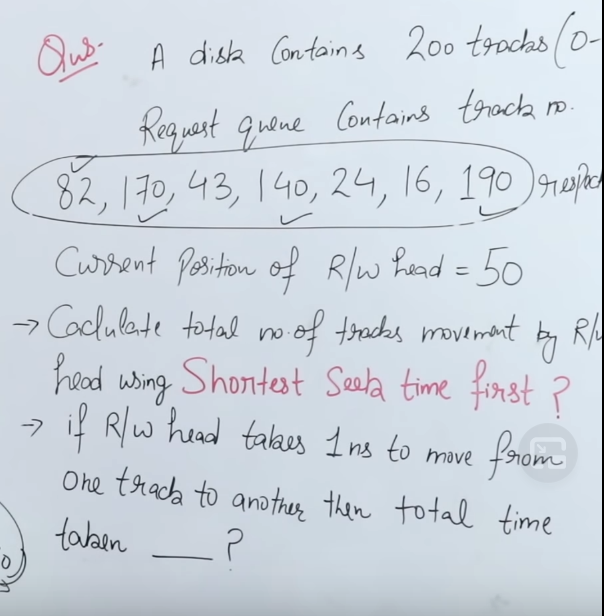 Qus. A disk Contains 200 tracks (0-
Request queue Contains track no.
82, 170, 43, 140, 24, 16, 190 respec
Current Position of R/W head = 50
→ Caclulate total no. of tracks movement by R/W
head using Shortest Seek time first ?
→ if R/W head takes 1ns to move from
One track to another then total time
taken ___ ?